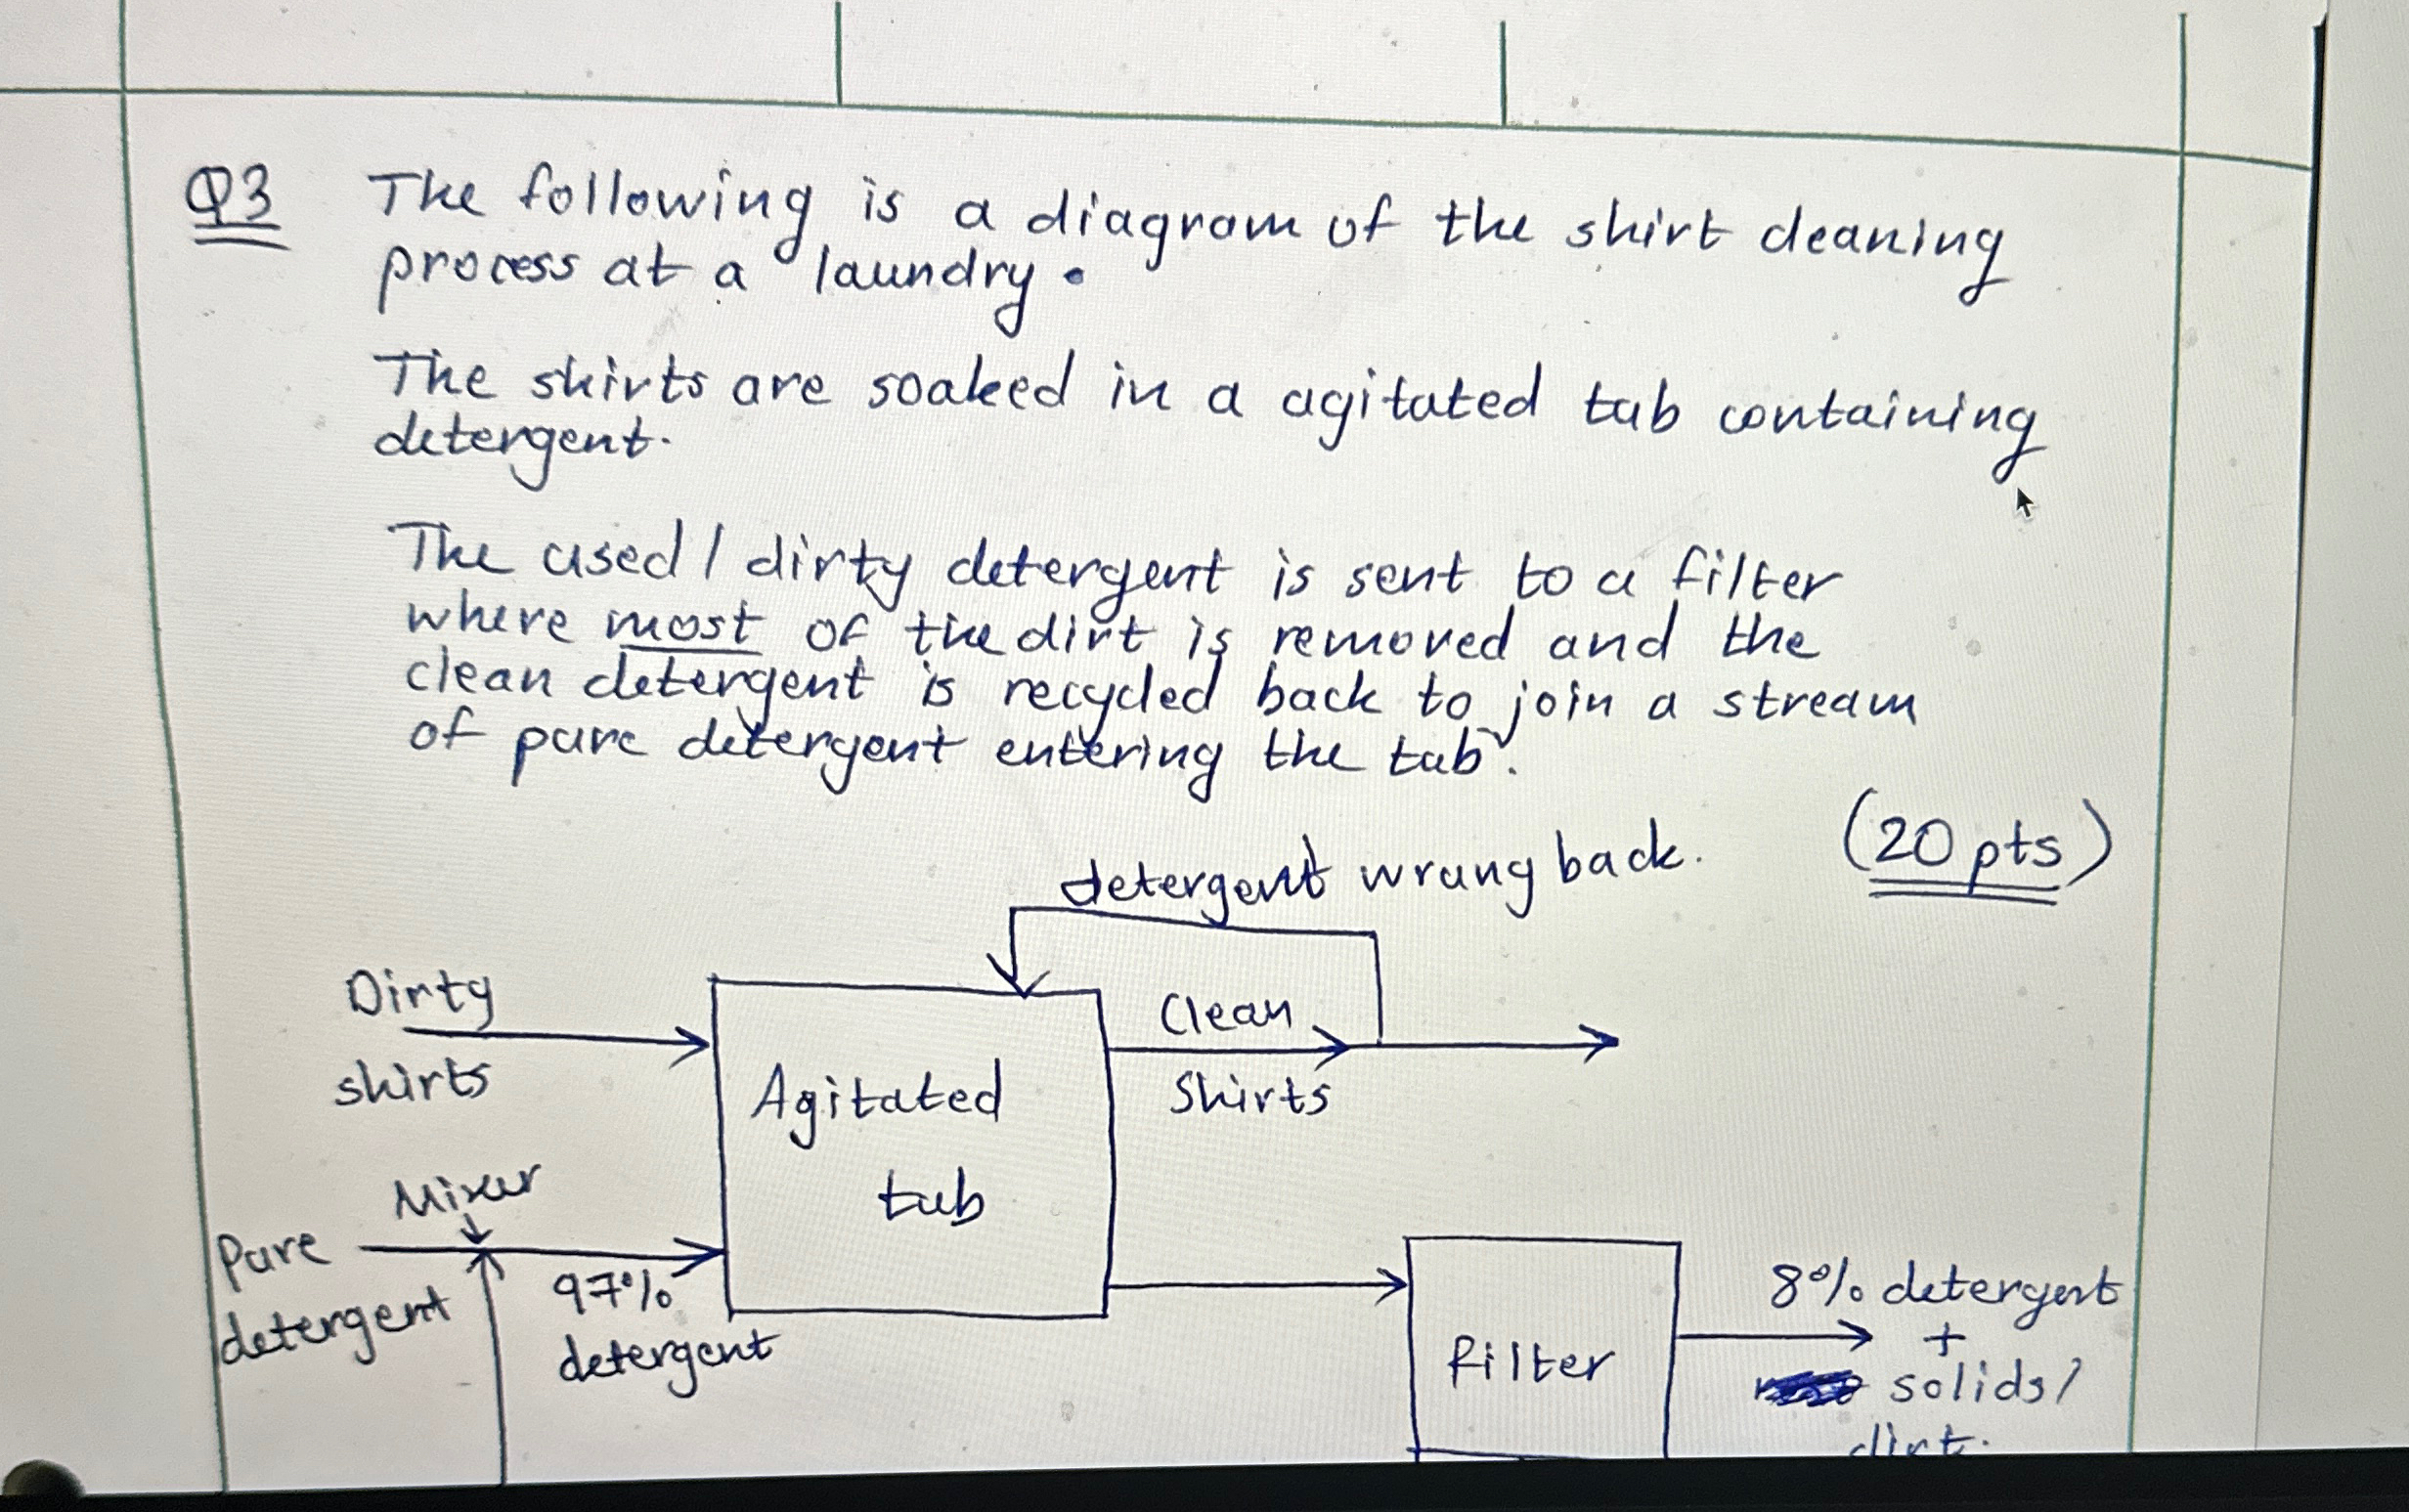 Q3 The following is a diagram of the shirt cleaning
process at a laundry.
The shirts are soaked in a agitated tub containing
detergent.
The used / dirty detergent is sent to a filter
where most of the dirt is removed and the
clean detergent is recycled back to join a stream
of pure detergent entering the tub.
(20 pts)
detergent wrung back.
Dirty
shirts
Clean
Shirts
Agitated
tub
Mixer
Pure
detergent
97%
detergent
Filter
8% detergent
+
solids/
dirt.